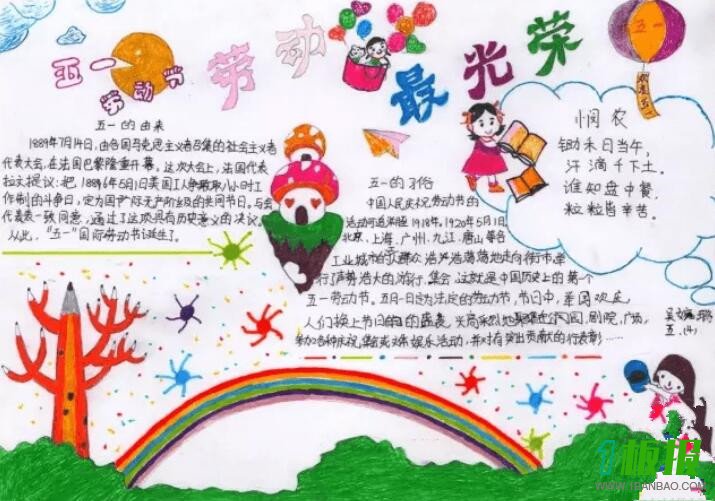 五一
劳动节
劳动
最光荣
五一
欢度五一
五一的由来
1889年7月14日,由各国马克思主义者召集的社会主义者
代表大会,在法国巴黎隆重开幕。这次大会上,法国代表
拉文提议:把1886年5月1日美国工人争取八小时工
作制的斗争日,定为国际无产阶级的共同节日。与会
代表一致同意,通过了这项具有历史意义的决议。
从此,“五一”国际劳动节诞生了。
五一的习俗
中国人民庆祝劳动节的
活动可追溯至1918年。1920年5月1日,
北京、上海、广州、九江、唐山等各
工业城市的群众浩浩荡荡地走向街市,举
行了声势浩大的游行、集会,这就是中国历史上的第一个
五一劳动节。五月一日定为法定的劳动节,节日中,举国欢庆,
人们换上节日的盛装,兴高采烈地聚集在公园、剧院、广场,
参加各种庆祝集会或文体娱乐活动,并对有突出贡献的行表彰……
悯农
锄禾日当午,
汗滴禾下土。
谁知盘中餐,
粒粒皆辛苦。
五.(4)
板报
WWW.1BANBAO.COM